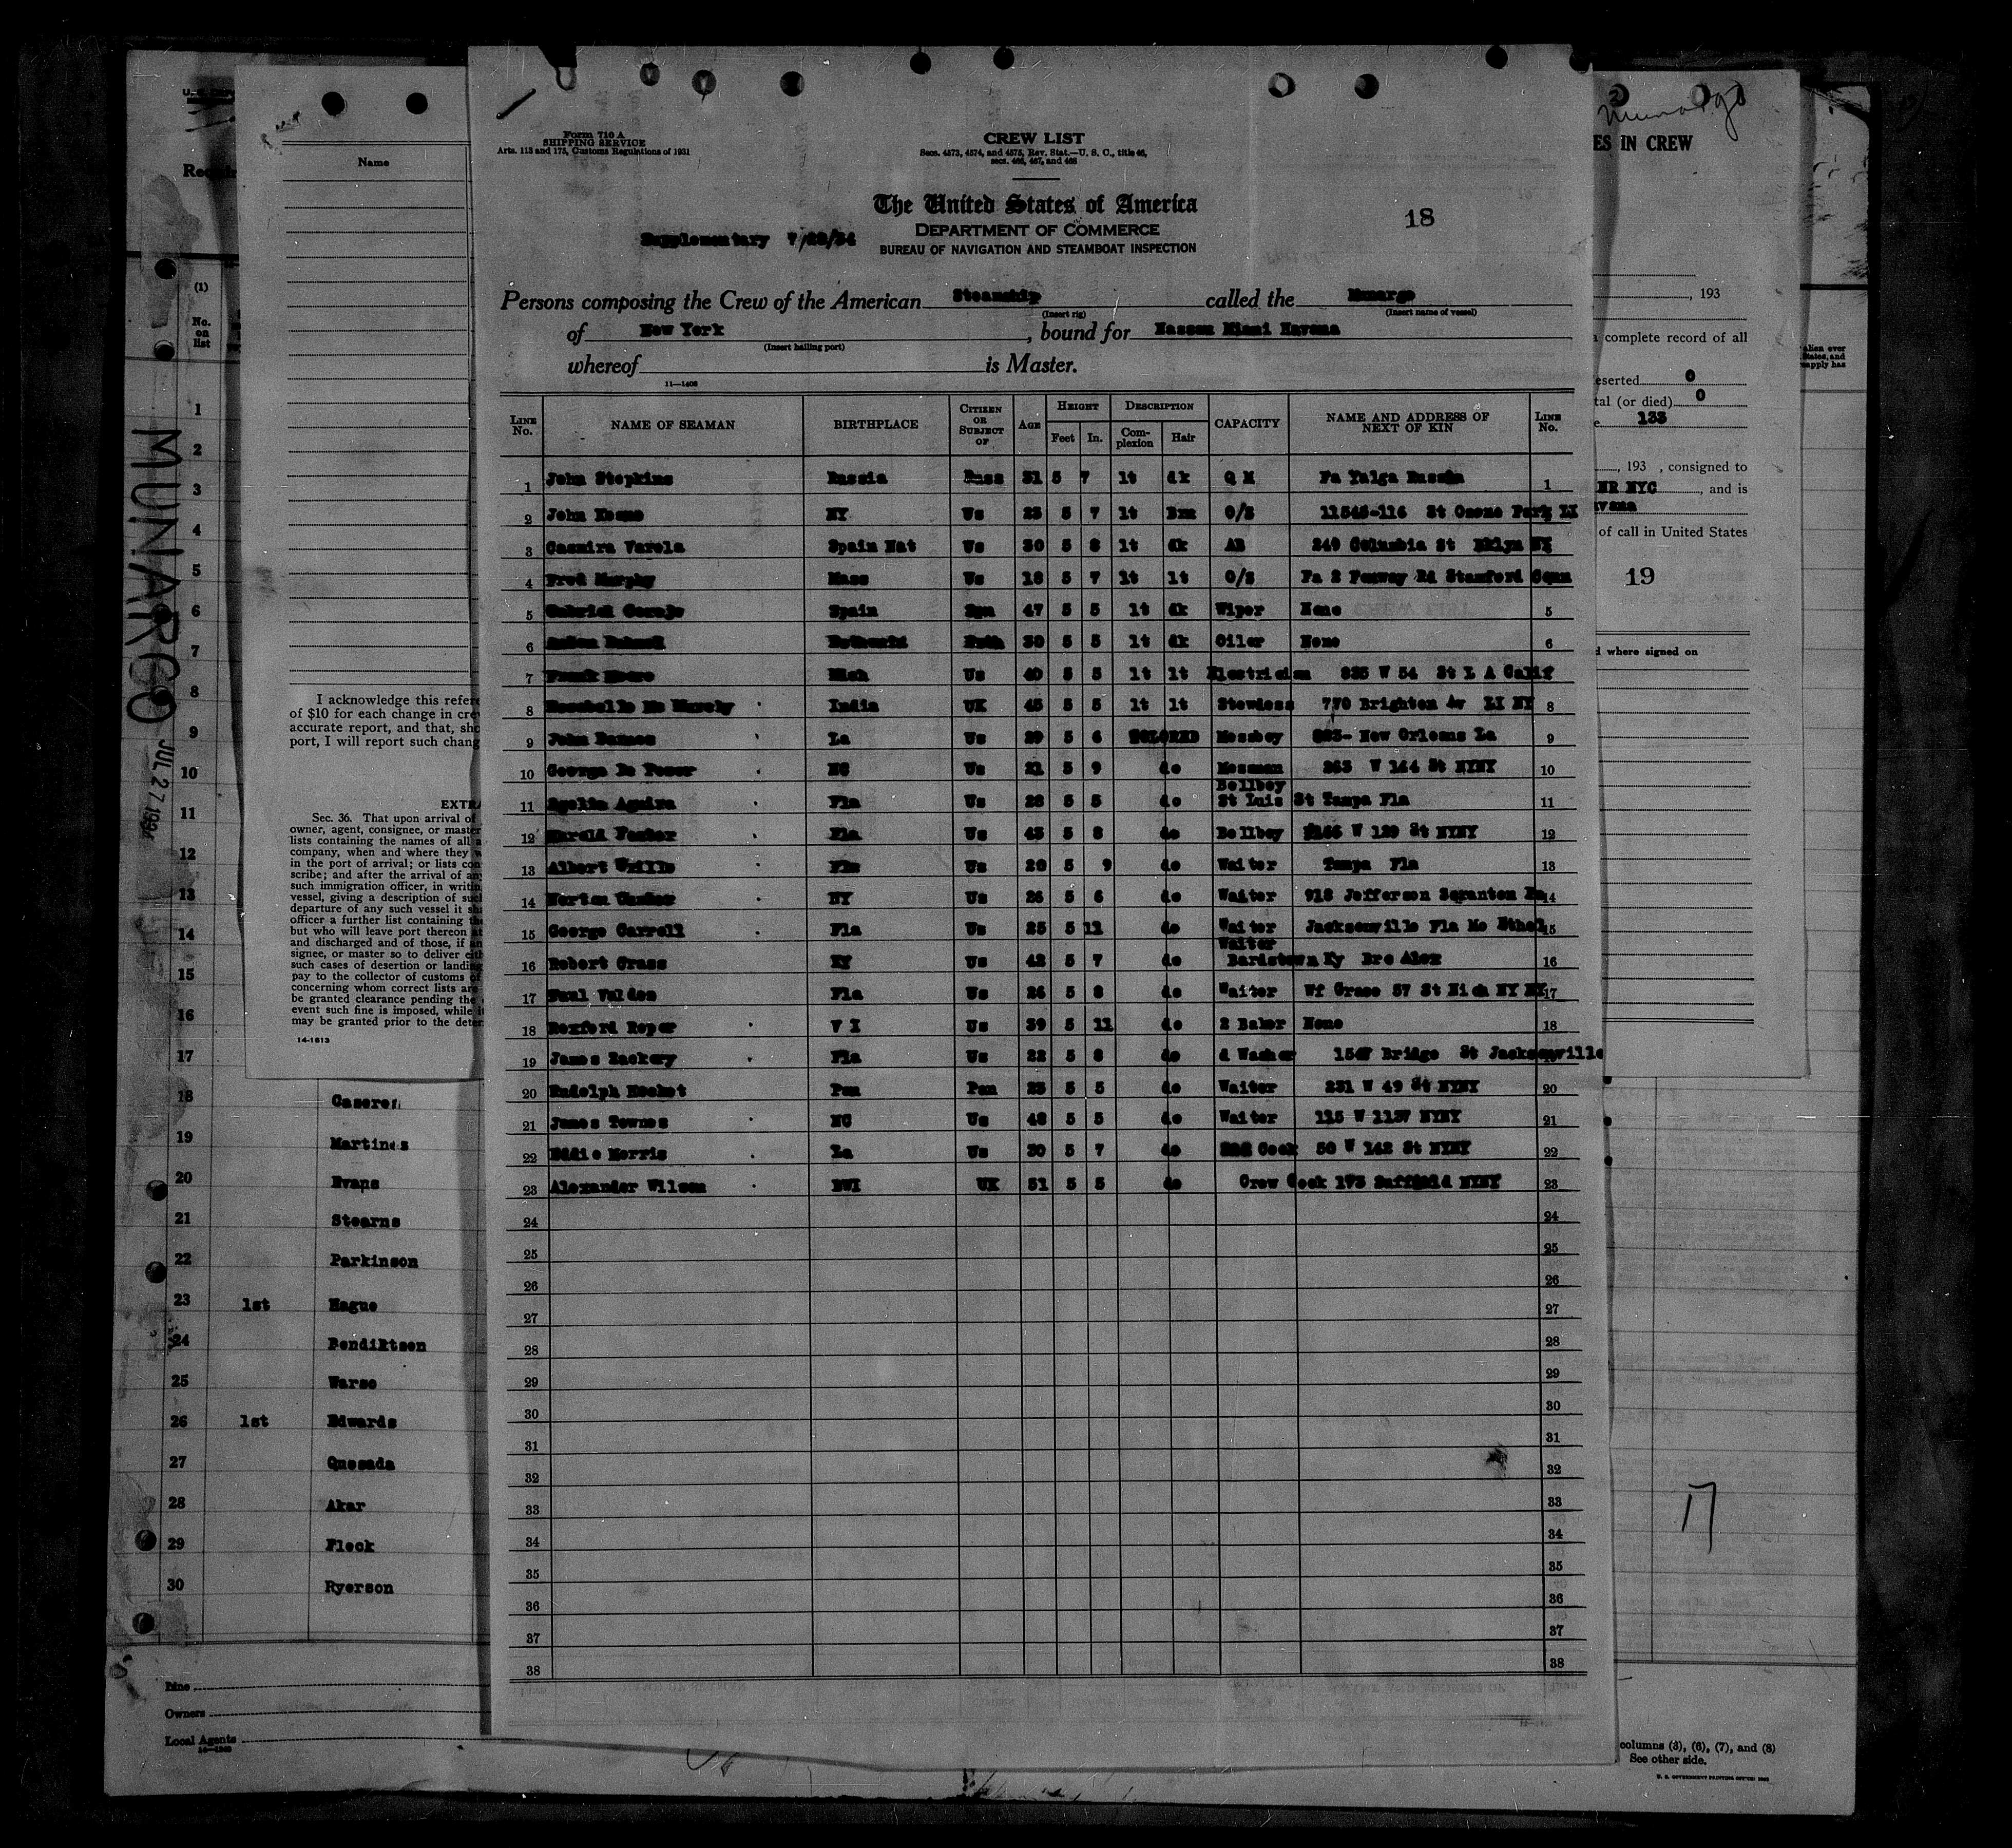 Form 710 A
SHIPPING SERVICE
Arts. 113 and 175, Customs Regulations of 1931
CREW LIST
Secs. 4573, 4574, and 4575, Rev. Stat.—U. S. C., title 46,
secs. 466, 467, and 468
The United States of America
DEPARTMENT OF COMMERCE
BUREAU OF NAVIGATION AND STEAMBOAT INSPECTION
18
Supplementary
Persons composing the Crew of the American Steamship called the Munargo
(Insert rig) (Insert name of vessel)
of New York, bound for Nassau Miami Havana
(Insert hailing port)
whereof is Master.
11—1408
LINE No. NAME OF SEAMAN BIRTHPLACE CITIZEN OR SUBJECT OF AGE HEIGHT Feet In. DESCRIPTION Complexion Hair CAPACITY NAME AND ADDRESS OF NEXT OF KIN LINE No.
1 John Stepkins Russia Russ 31 5 7 lt dk Q M Fa Russia 1
2 John NY Us 23 5 7 lt Brn O/S St Ozone Park LI
3 Casmira Varela Spain Nat Us 30 5 8 lt dk AB 249 Columbia St Bklyn NY
4 Fred Murphy Mass Us 18 5 7 lt lt O/S Fa 2 Fenway Rd Stamford Conn
5 Gabriel Spain Spn 47 5 5 lt dk Wiper None 5
6 30 5 5 lt dk Oiler None 6
7 Frank Moore Us 40 5 5 lt lt Electrician 835 W 54 St L A Calif
8 India UK 45 5 5 lt lt Stewdess 770 Brighton Av LI NY 8
9 John Barnes La Us 29 5 6 COLORED Messboy New Orleans La 9
10 George De Us 21 5 9 do Messman 263 W 144 St NYNY 10
11 Aguira Fla Us 28 5 5 do Bellboy St Luis St Tampa Fla 11
12 Harold Foster Fla Us 43 5 8 do Bellboy W 129 St NYNY 12
13 Albert Fla Us 20 5 9 do Waiter Tampa Fla 13
14 NY Us 26 5 6 do Waiter 918 Jefferson Scranton Pa 14
15 George Carroll Fla Us 25 5 11 do Waiter Jacksonville Fla Mo Ethel 15
16 Robert Grass KY Us 42 5 7 do Waiter Bardstown Ky Bro Alex 16
17 Paul Valdes Fla Us 26 5 8 do Waiter Wf Grace 57 St Nich NY NY 17
18 Roxford Roper V I Us 39 5 11 do 2 Baker None 18
19 James Zackery Fla Us 22 5 8 do d Washer Bridge St Jacksonville
20 Rudolph Pan Pan 23 5 5 do Waiter 231 W 49 St NYNY 20
21 James Townes NC Us 48 5 5 do Waiter 115 W NYNY 21
22 Eddie Morris La Us 30 5 7 do Cook 50 W 142 St NYNY 22
23 Alexander Wilson BWI UK 51 5 5 do Crew Cook 173 NYNY 23
24 24
25 25
26 26
27 27
28 28
29 29
30 30
31 31
32 32
33 33
34 34
35 35
36 36
37 37
38 38
Name
I acknowledge this refer
of $10 for each change in cre
accurate report, and that, sho
port, I will report such chang
EXTRA
Sec. 36. That upon arrival of
owner, agent, consignee, or master
lists containing the names of all a
company, when and where they w
in the port of arrival; or lists con
scribe; and after the arrival of any
such immigration officer, in writin
vessel, giving a description of such
departure of any such vessel it sh
officer a further list containing the
but who will leave port thereon at
and discharged and of those, if an
signee, or master so to deliver eith
such cases of desertion or landing
pay to the collector of customs of
concerning whom correct lists are
be granted clearance pending the
event such fine is imposed, while it
may be granted prior to the deter
14-1613
MUNARGO
JUL 27 1934
(1)
No. on list
1
2
3
4
5
6
7
8
9
10
11
12
13
14
15
16
17
18 Caseres
19 Martines
20 Evans
21 Stearns
22 Parkinson
23 1st Hague
24 Bendiktsen
25 Warse
26 1st Edwards
27 Quesada
28 Akar
29 Fleck
30 Ryerson
Line
Owners
Local Agents
Munargo
ES IN CREW
, 193
a complete record of all
eserted 0
tal (or died) 0
e 133
, 193 , consigned to
NR NYC, and is
avana
of call in United States
19
d where signed on
alien ever
States, and
reapply has
17
columns (3), (6), (7), and (8)
See other side.
U. S. GOVERNMENT PRINTING OFFICE